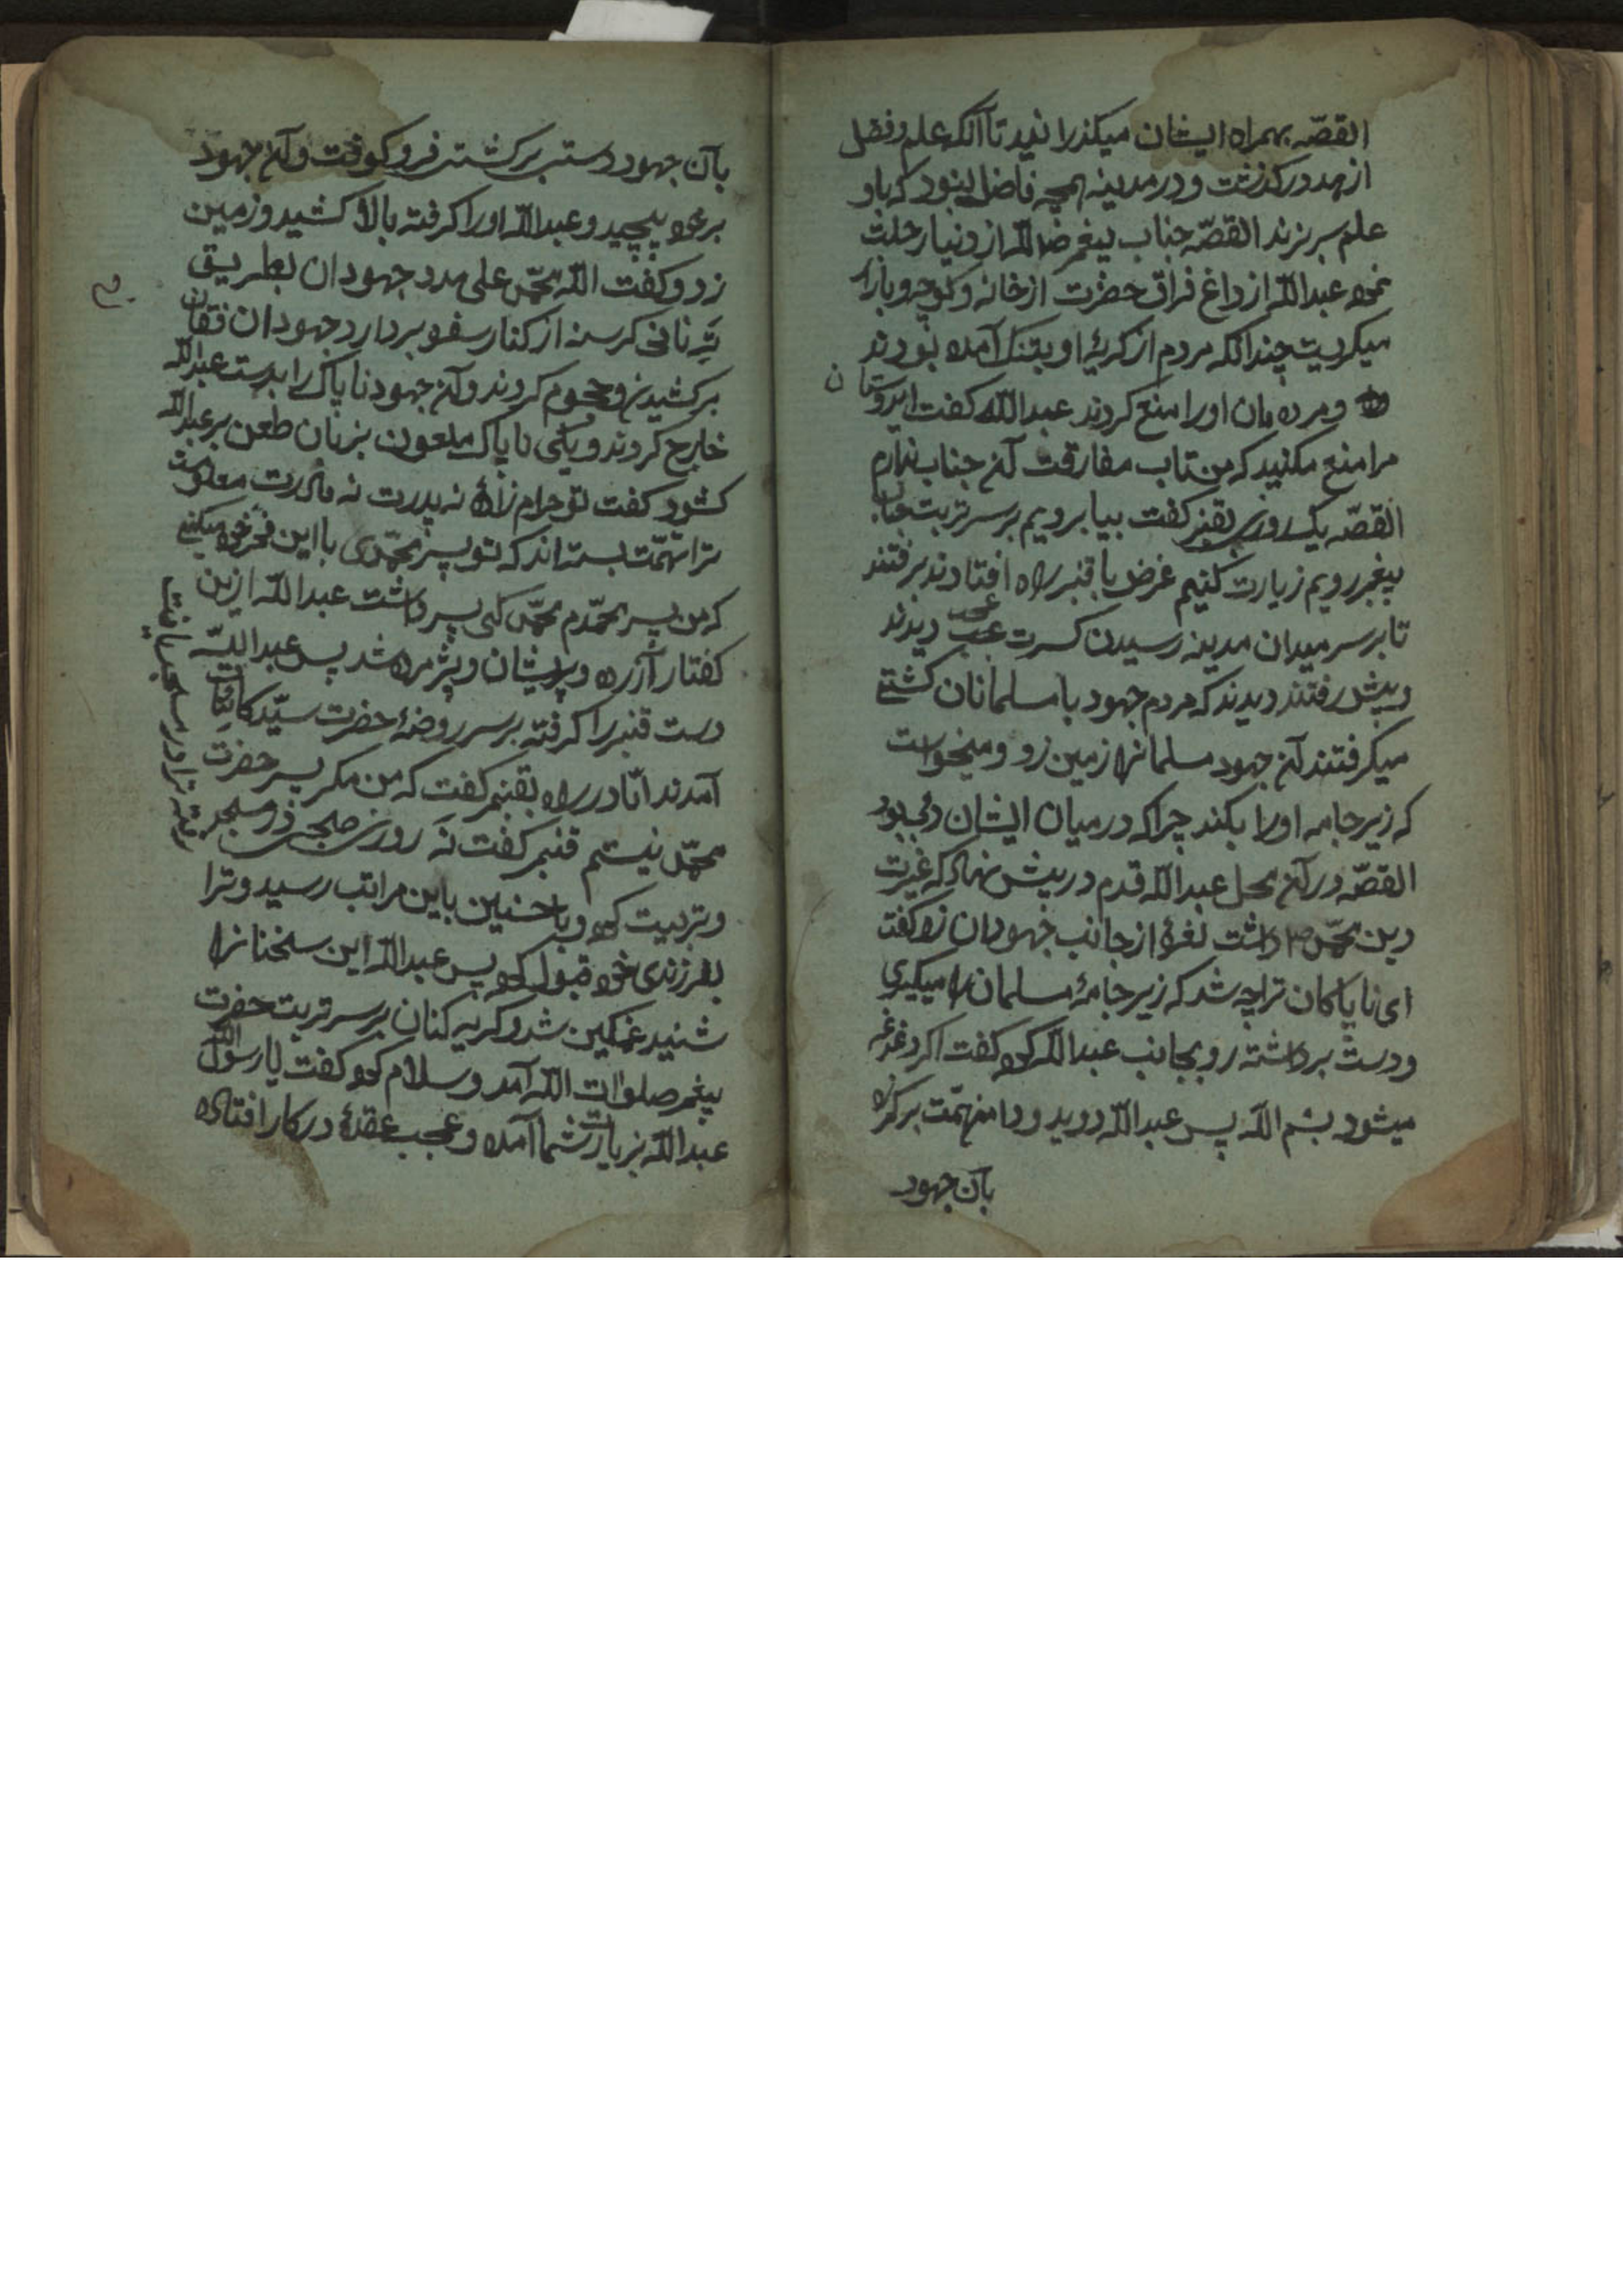 القصّه بهمراه ایشان میکذرانید تا آنکه علم و فضل
از هد درکذشت و در مدینه هیچه فاضل نبود که باو
علم سر بزند القصّه جناب پیغمبر خدا از دنیا رحلت
نمود عبداللّه از داغ فراق حضرت از خانه و کوچه و بازار
میکریست چندانکه مردم از کریهٔ او بتنک آمده بودند
و مرده مان او را منع کردند عبداللّه کفت ایدوستان
مرا منع مکنید که من تاب مفارقت آن جناب ندارم
القصّه یک روزی بقنبر کفت بیا برویم بر سر تربت جناب
پیغمبر رویم زیارت کنیم غرض با قنبر براه افتادند برفتند
تا بر سر میدان مدینه رسیدن کسرت عجب دیدند
و پیش رفتند دیدند که مردم جهود با مسلمانان کشتے
میکرفتند آن جهود مسلمانرا زمین زد و میخواست
که زیر جامه او را بکند چرا که در میان ایشان
القصّه در آن محل عبداللّه قدم در پیش نهاد که غیرت
دین محمّد داشت نغرهٔ از جانب جهودان زد کفت
ای ناپاکان ترا چه شد که زیر جامهٔ مسلمان را میکیری
و دست برداشته رو بجانب عبداللّه کرد کفت اکر دغدغه
میشود بسم اللّه پس عبداللّه دوید و دامن همّت بر کمر زد
بآن جهود
بآن جهود دستی بر کشتی فرو کوفت و آن جهود
بر خود پیچید و عبداللّه او را کرفته بالا کشید و زمین
زد و کفت اللّه محمّد علی مدد جهودان بطریق
نانی کرسنه از کنار سفره بردارد جهودان فقان
برکشیدند و هجوم کردند و آن جهود ناپاک را بدست عبداللّه
خلاج کردند و یکی ناپاک ملعون بزبان طعن بر عبداللّه
کشود کفت تو حرام زادهٔ نه پدرت نه مادرت معلوم
ترا تهمّت بسته اند که تو پسر محمّدی با این فخر خود میکنی
که من پسر محمّدم محمّد کی پسر داشت عبداللّه ازین
کفتار آزرده و پریشان و پژمرده شد پس عبداللّه
دست قنبر را کرفته بر سر روضهٔ حضرت سیّد کائنات
آمدند امّا در راه بقنبر کفت که من مکر پسر حضرت
محمّد نیستم قنبر کفت نه روزی صبحی در مسجد
و تربیت کرد و با حسنین باین مراتب رسید و ترا
بفرزندی خود قبول کرد پس عبداللّه این سخنانرا
شنید غمکین شد و کریه کنان بر سر تربت حضرت
پیغمبر صلوات اللّه آمد و سلام کرد کفت یا رسول اللّه
عبداللّه بزیارت شما آمده و عجب عقدهٔ در کار افتاده